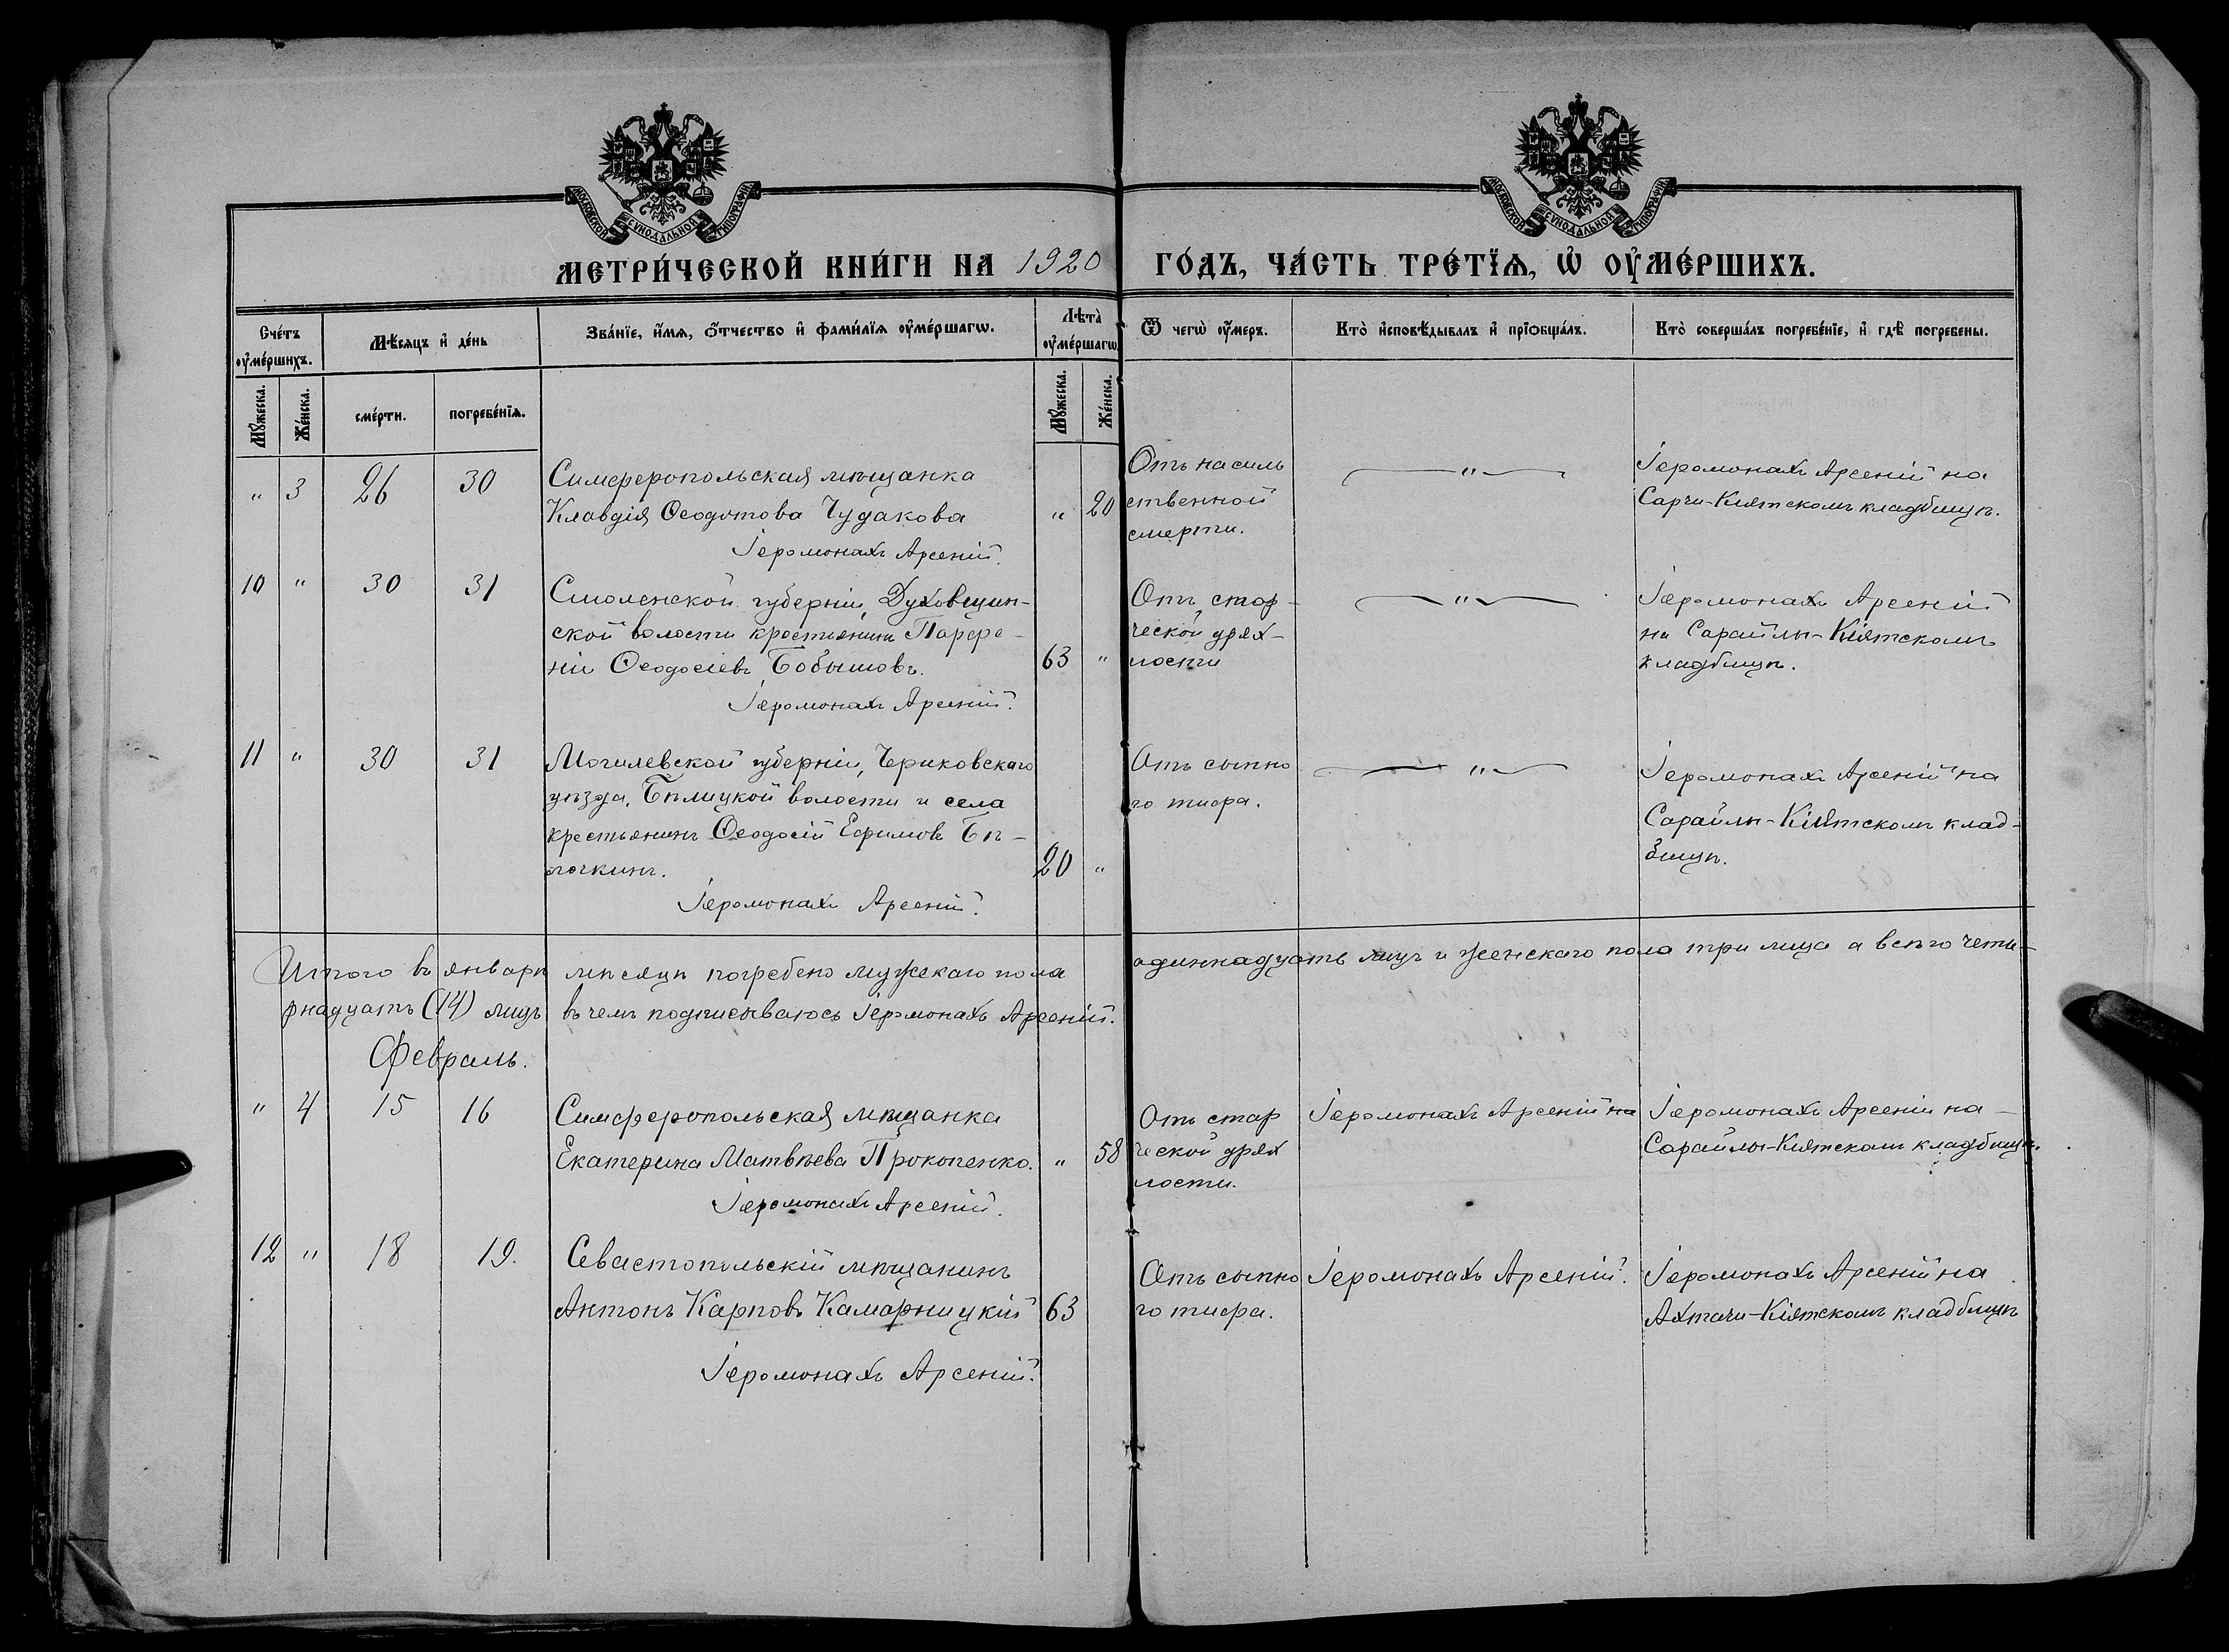 МОСКОВСКОЙ СѴНОДАЛЬНОЙ ТИПОГРАФІИ
МОСКОВСКОЙ СѴНОДАЛЬНОЙ ТИПОГРАФІИ
МЕТРИ́ЧЕСКОЙ КНИ́ГИ НА 1920 ГО́ДЪ, ЧА́СТЬ ТРЕ́ТЇѦ, Ѡ҆ ОУ҆МЕ́РШИХЪ.
Сче́тъ оу҆ме́ршихъ.
Мѣ́сѧцъ и҆ де́нь
Зва́нїе, и҆́мѧ, ѻ҆́тчество и҆ фами́лїѧ оу҆ме́ршагѡ.
Лѣта̀ оу҆ме́ршагѡ.
Ѿ чегѡ̀ оу҆́меръ.
Кто̀ и҆сповѣ́дывалъ и҆ прїѻбща́лъ.
Кто̀ соверша́лъ погребе́нїе, и҆ гдѣ̀ погребены.
Мꙋ́жеска.
Же́нска.
сме́рти.
погребе́нїѧ.
Мꙋ́жеска.
Же́нска.
" 3 26 30 Симферопольская мѣщанка
Клавдія Ѳеодотова Чудакова " 20
Іеромонахъ Арсеній.
Отъ насиль
ственной
смерти.
— " —
Іеромонахъ Арсеній на
Сарчи-Кіятскомъ кладбищѣ.
10 " 30 31 Смоленской губерніи, Духовщин-
ской волости крестьянинъ Парфе-
ній Ѳеодосіевъ Бобышовъ. 63 "
Іеромонахъ Арсеній.
Отъ стар-
ческой дрях-
лости
— " —
Іеромонахъ Арсеній
на Сарайлы-Кіятскомъ
кладбищѣ.
11 " 30 31 Могилевской губерніи, Чериковскаго
уѣзда, Бѣлицкой волости и села
крестьянинъ Ѳеодосій Ефимовъ Бѣ-
лочкинъ. 20 "
Іеромонахъ Арсеній.
Отъ сыпно
го тифа.
— " —
Іеромонахъ Арсеній на
Сарайлы-Кіятскомъ клад-
бищѣ.
Итого въ январѣ мѣсяцѣ погребено мужскаго пола одиннадцать лицъ и женскаго пола три лица а всего четы-
рнадцать (14) лицъ въ чемъ подписываюсь Іеромонахъ Арсеній.
Февраль.
" 4 15 16 Симферопольская мѣщанка
Екатерина Матвѣева Прокопенко. " 58
Іеромонахъ Арсеній.
Отъ стар
ческой дрях
лости.
Іеромонахъ Арсеній на
Іеромонахъ Арсеній на
Сарайлы-Кіятскомъ кладбищѣ.
12 " 18 19. Севастопольскій мѣщанинъ
Антонъ Карповъ Камарницкій 63
Іеромонахъ Арсеній.
Отъ сыпно
го тифа.
Іеромонахъ Арсеній.
Іеромонахъ Арсеній на
Ахтачи-Кіятскомъ кладбищѣ